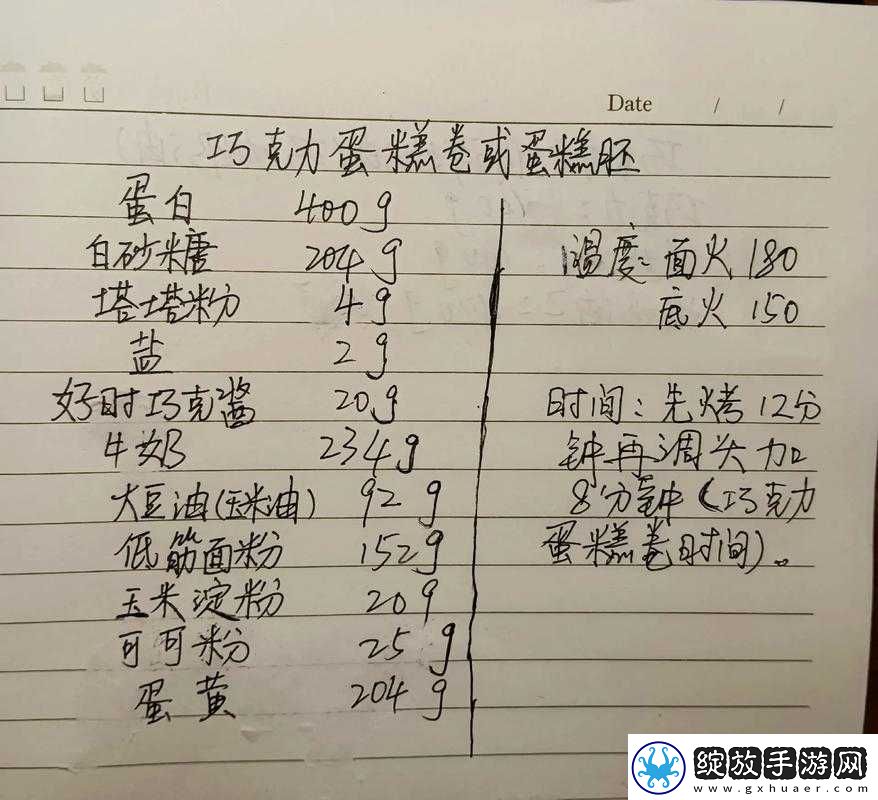 Date / /
巧克力蛋糕卷或蛋糕胚
蛋白 400g
白砂糖 204g
塔塔粉 4g
盐 2g
好时巧克酱 20g
牛奶 234g
大豆油(玉米油) 92g
低筋面粉 152g
玉米淀粉 20g
可可粉 25g
蛋黄 204g
温度：面火180
底火150
时间：先烤12分
钟再调头加
8分钟（巧克力
蛋糕卷时间）。
绽放手游网
www.gxhuaer.com